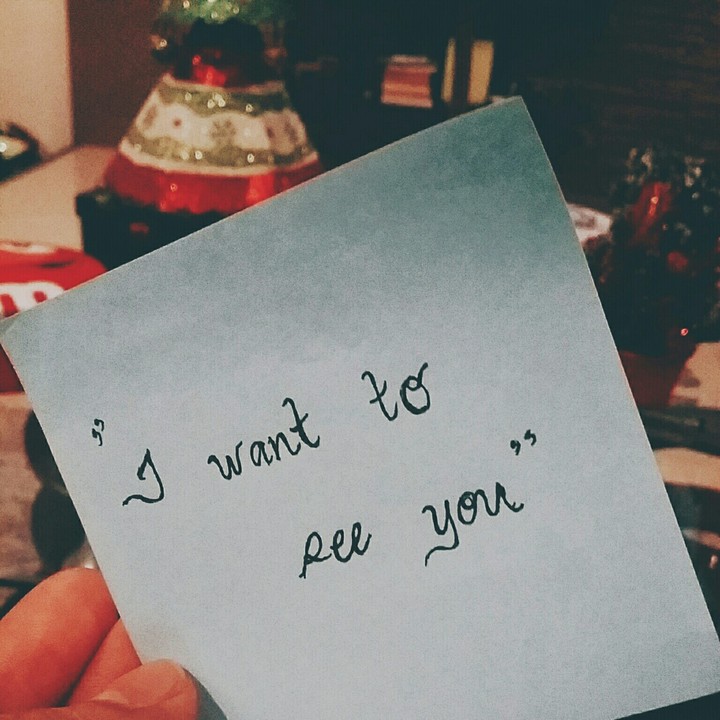 "I want to
see you"